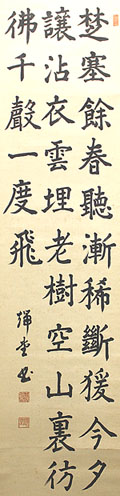 楚塞餘春聽漸稀斷猨今夕
讓沾衣雲埋老樹空山裏彷
彿千聲一度飛
堂書